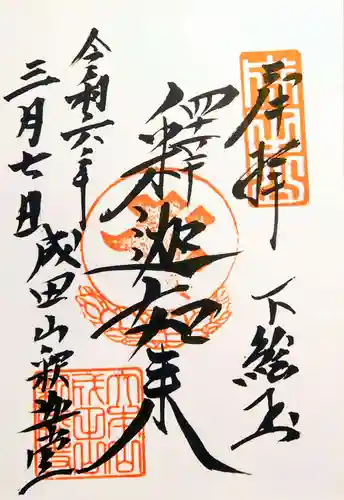 奉拝
下総国
釋迦如来
令和六年
三月七日
成田山釈迦堂